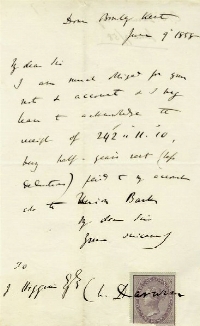 Down Bromley Kent
June 9 1858
My dear Sir
I am much obliged for your
note & account & I beg
leave to acknowledge the
receipt of 242 " 11 " 10,
being half-years rent (less
deductions) paid to my account
at the Union Bank
My dear Sir
Yours sincerely
To
J Higgins Esq
Ch. Darwin